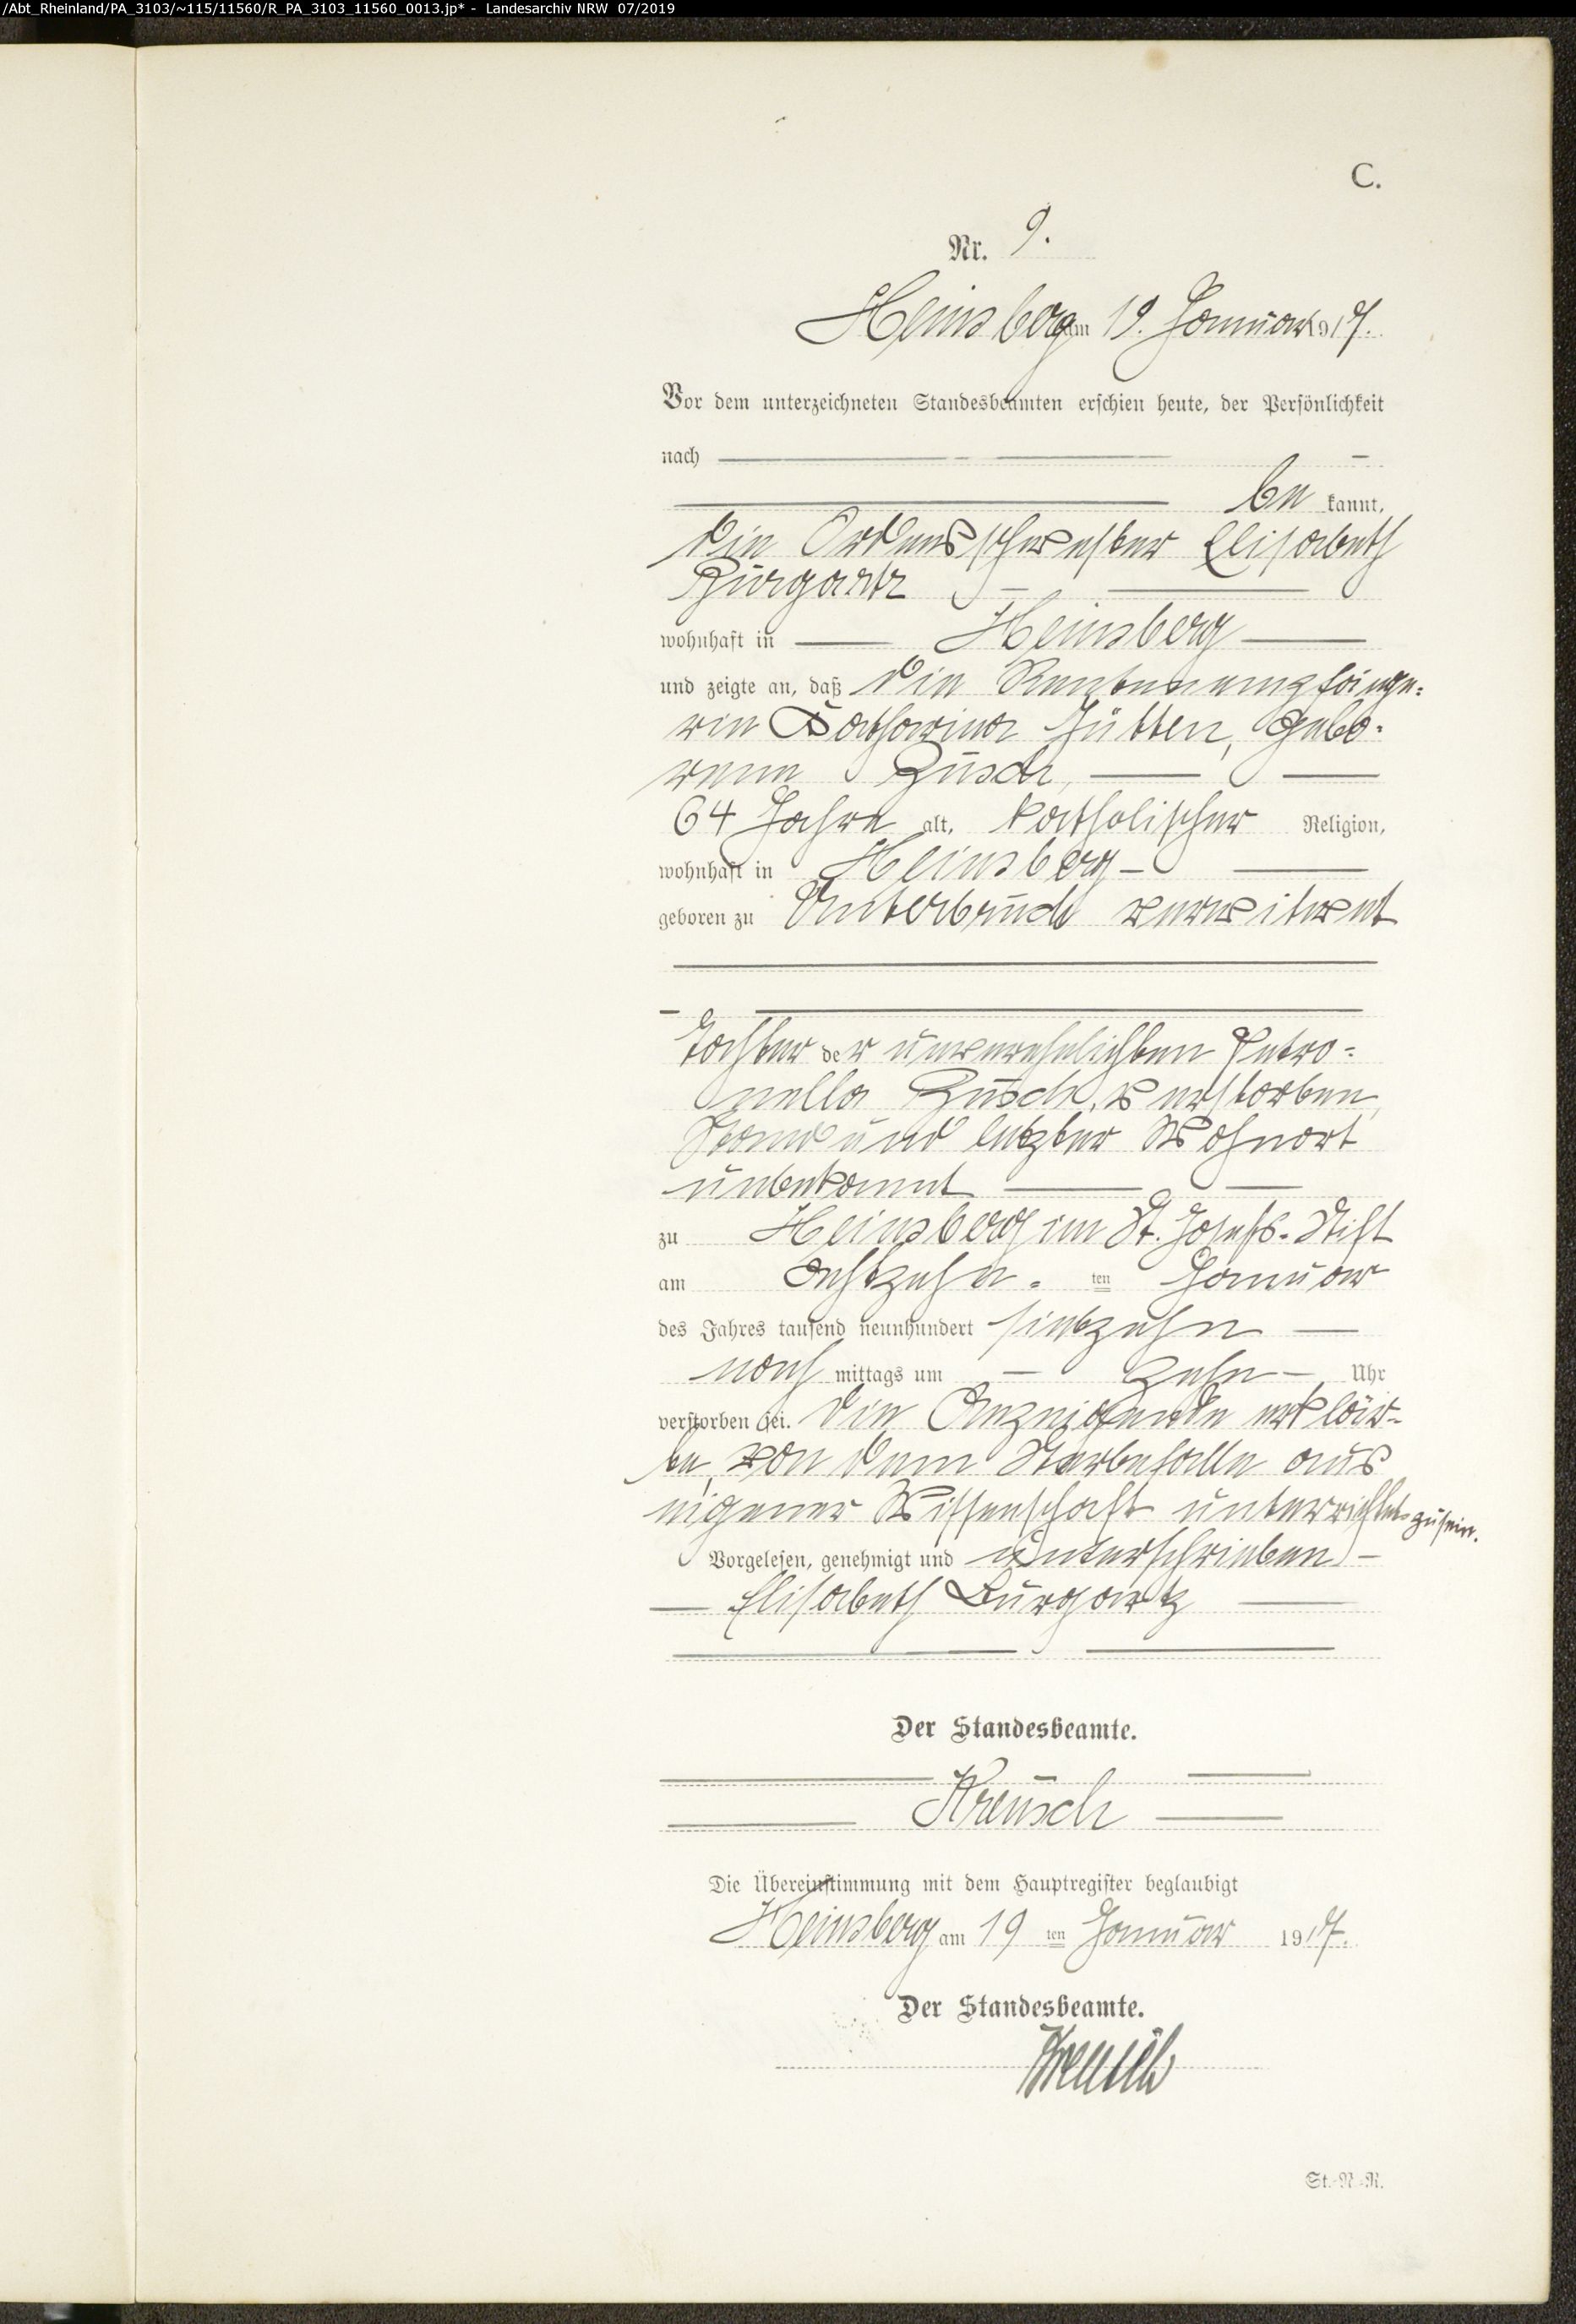 /Abt_Rheinland/PA_3103/~115/11560/R_PA_3103_11560_0013.jp* - Landesarchiv NRW 07/2019
C.
Nr. 9.
Heinsberg am 19. Januar 1917.
Vor dem unterzeichneten Standesbeamten erschien heute, der Persönlichkeit
nach
be kannt,
die Ordensschwester Elisabeth
Burgartz
wohnhaft in Heinsberg
und zeigte an, daß die Rentenempfänge-
rin Katharina Jütten, gebo-
rene Busch,
64 Jahre alt, katholischer Religion,
wohnhaft in Heinsberg
geboren zu Unterbruch verwitwet
Tochter der unverehelichten Petro-
nella Busch, verstorben,
Stand und letzter Wohnort
unbekannt
zu Heinsberg im St. Josefs-Stift
am achtzehn-ten Januar
des Jahres tausend neunhundert siebzehn
nach mittags um zehn Uhr
verstorben sei. Die Anzeigende erklär-
te, von dem Sterbefalle aus
eigener Wissenschaft unterrichtet zu sein.
Vorgelesen, genehmigt und unterschrieben
Elisabeth Burgartz
Der Standesbeamte.
Kreusch
Die Übereinstimmung mit dem Hauptregister beglaubigt
Heinsberg am 19 ten Januar 1917.
Der Standesbeamte.
Kreusch
St.-N.-R.